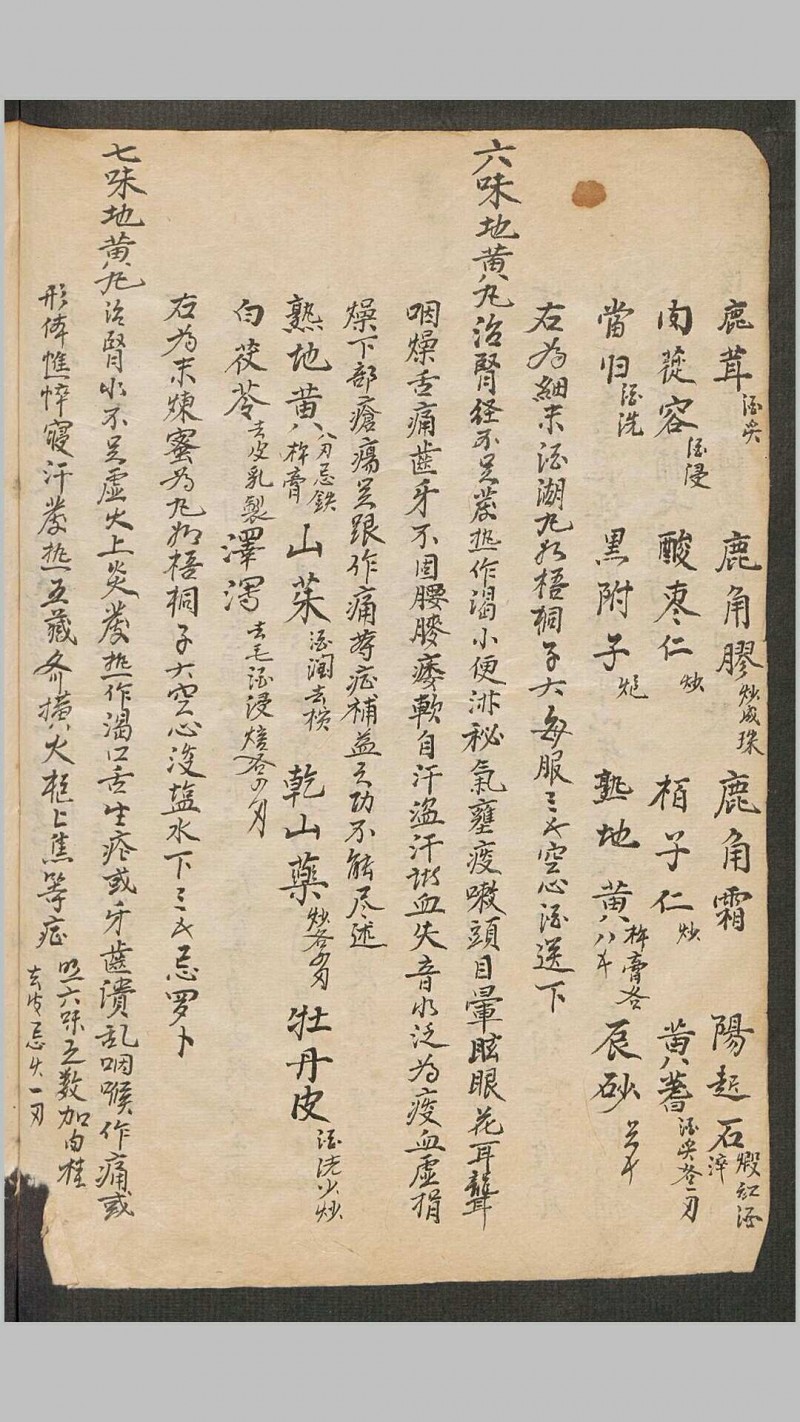 鹿茸酒炙 鹿角膠炒成珠 鹿角霜 陽起石煅紅酒淬
肉蓯容酒浸 酸枣仁炒 栢子仁炒 黄蓍酒炙各一刃
當归酒洗 黒附子炮 熟地黄八彳杵膏各 辰砂
右為細末酒湖丸如梧桐子大每服三彳空心酒送下
六味地黄丸治腎经不足發热作渴小便淋秘氣壅痰嗽頭目暈眩眼花耳聾
咽燥舌痛齒牙不固腰膝痿軟自汗盗汗諸血失音水泛為痰血虚捐
燥下部瘡瘍足跟作痛等症補益之功不能尽述
熟地黄八刃忌鉄杵膏 山茱酒润去核 乾山藥炒各 牡丹皮酒洗少炒
白茯苓去皮乳製 澤瀉去毛酒浸焙各
右為末煉蜜为丸如梧桐子大空心没塩水下三彳忌罗卜
七味地黄丸治腎水不足虚火上炎發热作渴口舌生疮或牙齒潰乱咽喉作痛或
形体憔悴寝汗發热五藏齐損火柜上焦等症 照六味之数加肉桂去皮忌火一刃